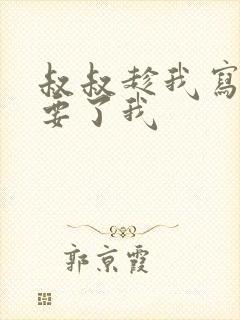 叔叔趁我寫
要了我
郭京霞